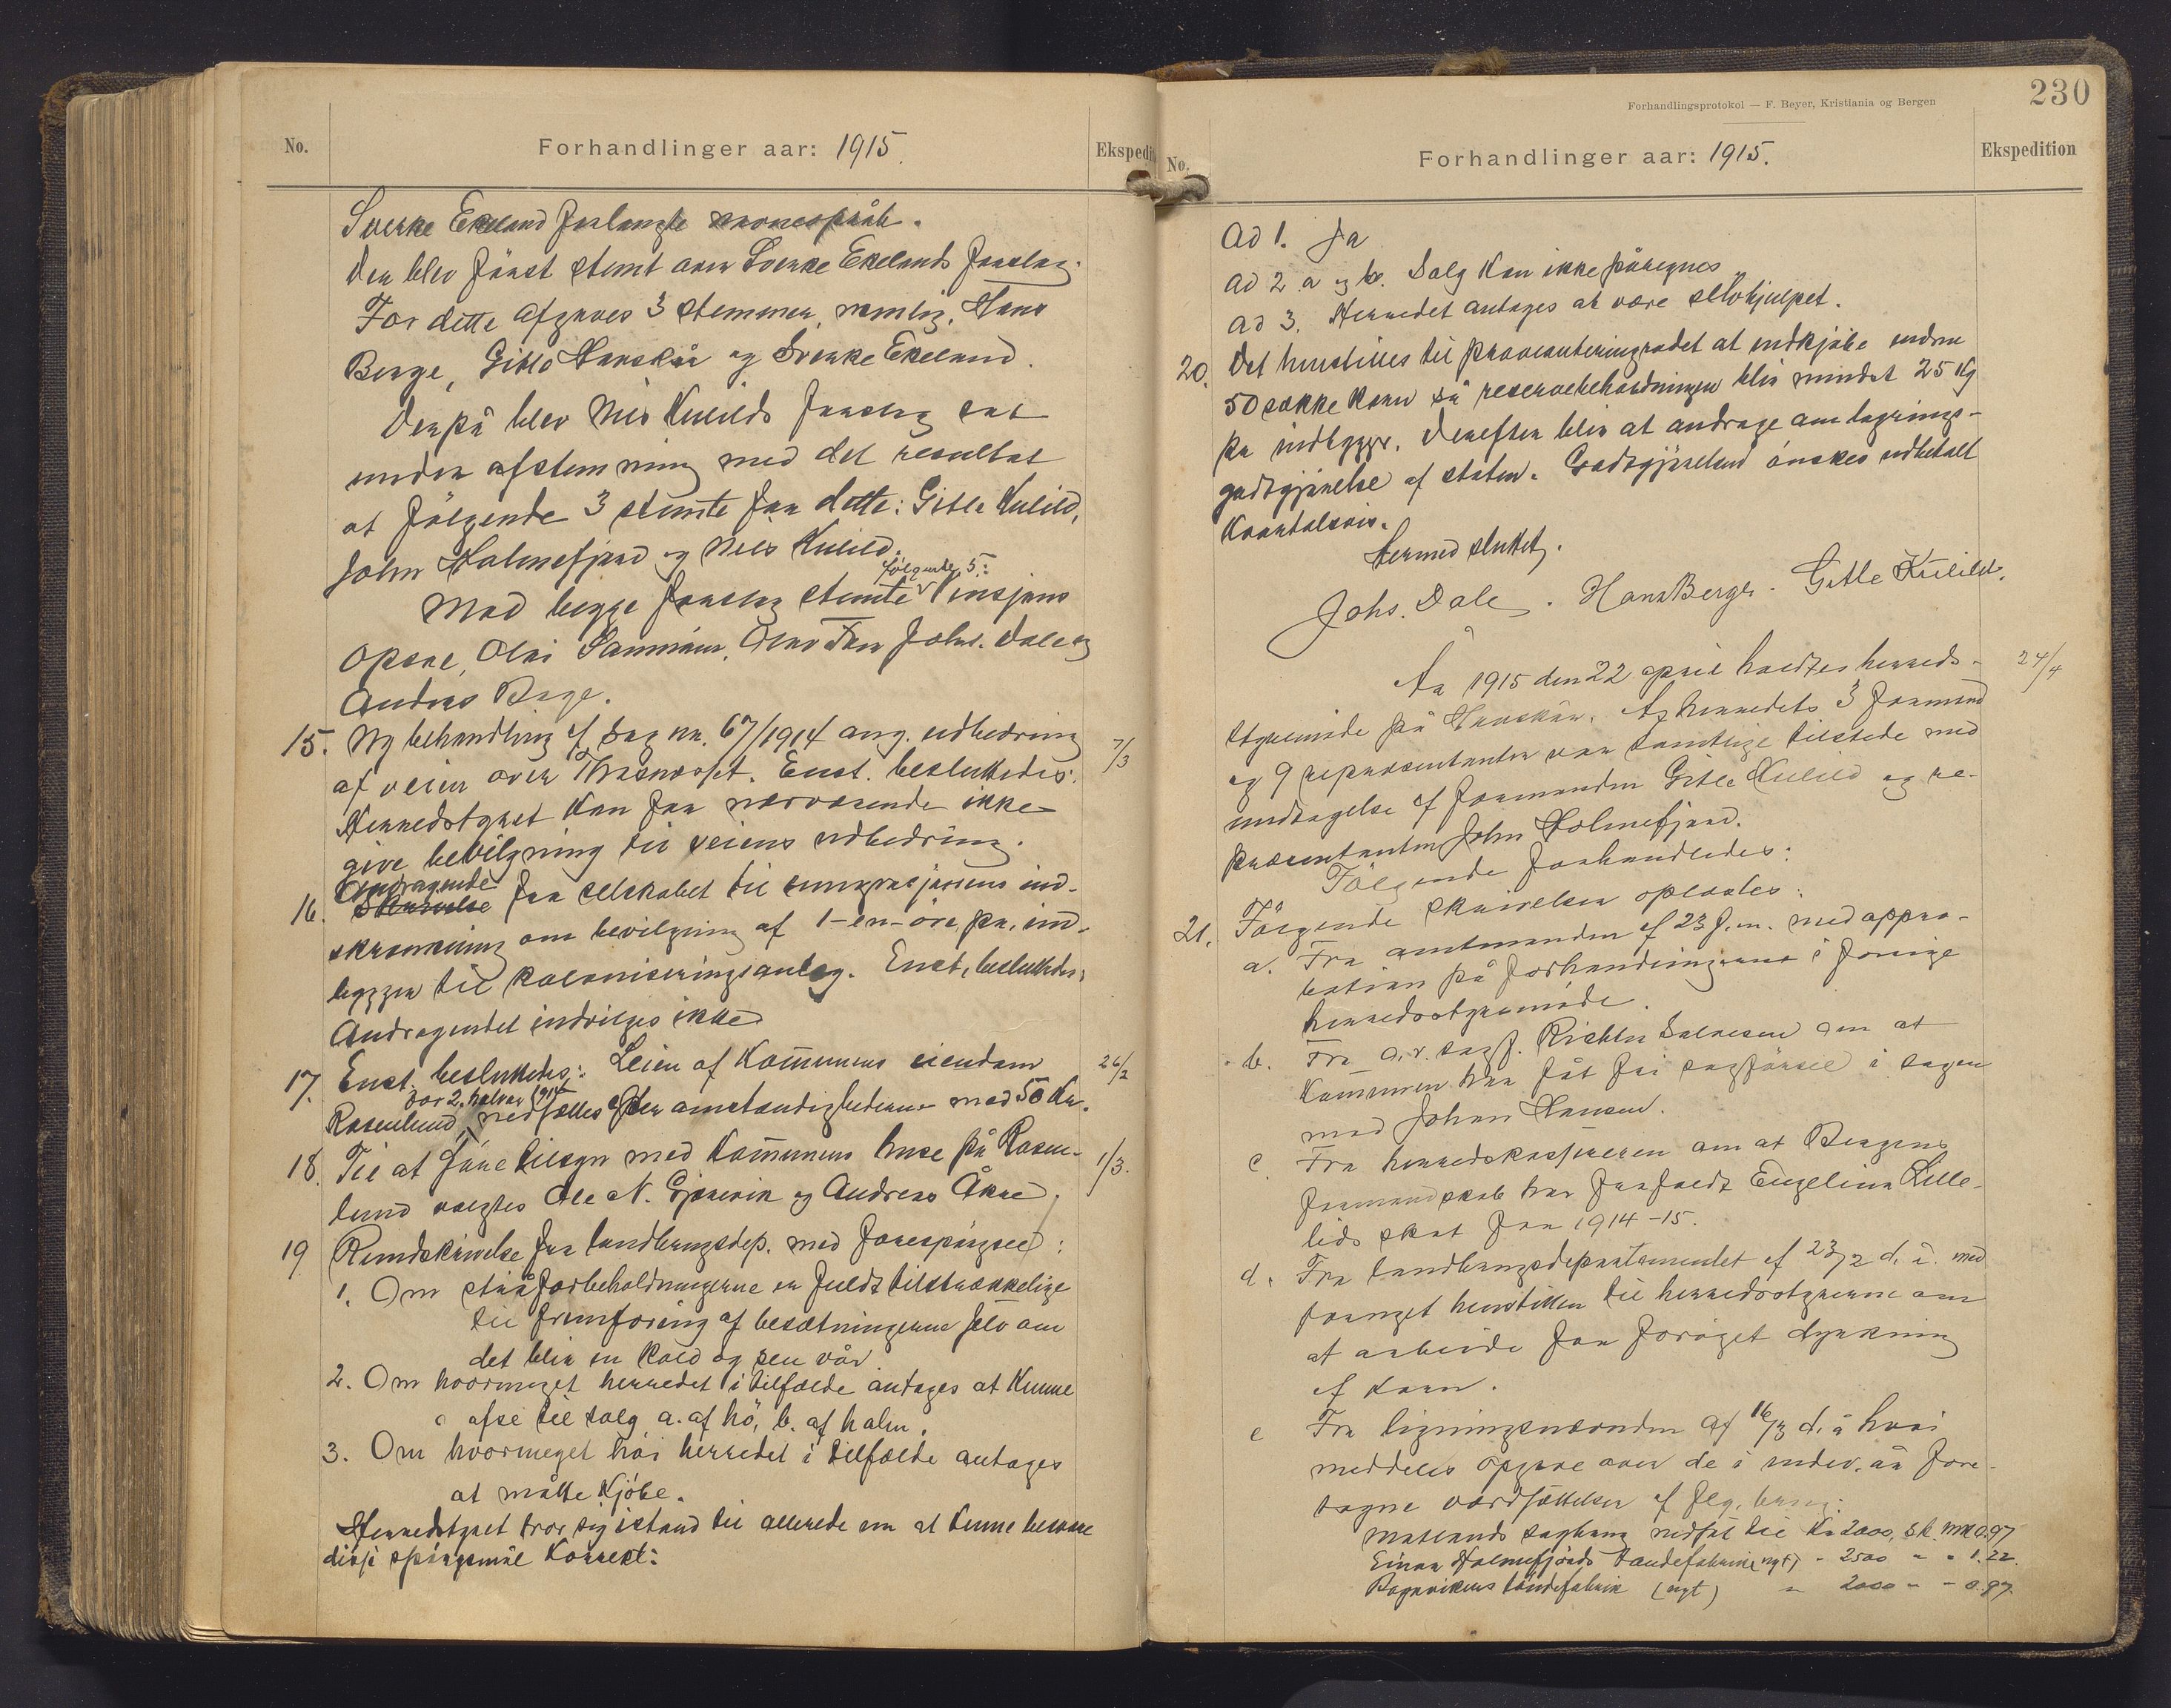 No.
Forhandlinger aar: 1915.
Ekspedi
Sverke Ekeland forlangte navneopråb.
Der blev först stemt over Sverke Ekelands forslag.
For dette afgaves 3 stemmer, nemlig. Hans
Berge, Gitle Havskår og Sverke Ekeland.
Derpå blev Nils Kulilds forslag sat
under afstemning med det resultat
at fölgende 3 stemte for dette: Gitle Kulild,
John Holmefjord og Nils Kulild.
Mod begge forslag stemte fölgende 5: Vinsjans
Opsae, Olai Sammann, Olav Fær Johs. Dale og
Andras Bage.
15. Ny behandling af sag nr. 67/1914 ang. udbedring
7/3
af veien over. Enst. besluttedes:
Herredstyret kan for nærværende ikke
give bevilgning til veiens udbedring.
16. Andragende fra selskabet til emigrasjonens ind-
skrænkning om bevilgning af 1-en-öre pr. ind-
bygger til koloniseringsanlæg. Enst. besluttedes:
Andragendet indvilges ikke
17. Enst. besluttedes: Leien af kommunens eiendom
26/2
Rosenlund for 2. halvår 1914 nedsættes efter omstændighederne med 50 kr.
18. Til at före tilsyn med kommunens huse på Rosen-
1/3.
lund valgtes Ole N. Gjærvik og Andreas Åkre.
19 Rundskrivelse fra landbrugsdep. med forespörgsel:
1. Om stråforbeholdningerne er fuldt tilstrækkelige
til fremforing af besætningerne selv om
det blir en kold og sen vår.
2. Om hvormeget herredet i tilfælde antages at kunne
afse til salg a. af hö, b. af halm.
3. Om hvormeget höi herredet i tilfælde antages
at måtte kjöbe.
Herredstyret tror sig istand til allerede nu at kunne besvare
disse spörgsmål korrekt:
230
Forhandlingsprotokol — F. Beyer, Kristiania og Bergen
No.
Forhandlinger aar: 1915.
Ekspedition
Ad 1. Ja
Ad 2 a og b. Salg kan ikke påregnes
Ad 3. Herredet antages at være selvhjulpet.
20. Det henstilles til provianteringsrådet at indkjöbe endnu
50 sække korn så reservebeholdningen blir mindst 25 kg
pr indbygger. Derefter blir at andrage om lagrings-
godtgjörelse af staten. Godtgjörelsen önskes udbetalt
kvartalsvis.
Hermed sluttet.
Johs. Dale. Hans Berge. Gitle Kulild.
År 1915 den 22 april holdtes herreds-
24/4
styremöde på Havskår. Af herredets 3 formænd
og 9 repræsentanter var samtlige tilstede med
undtagelse af formanden Gitle Kulild og re-
præsentanten John Holmefjord.
Fölgende forhandledes:
21. Fölgende skrivelser oplæstes:
a. Fra amtmanden af 23 f.m. med appro-
bation på forhandlingerne i forrige
herredsstyremöde.
b. Fra o.r. sagf. Richter Salvesen om at
kommunen har fåt fri sagförsel i sagen
mod Johan Hansen.
c. Fra herredskassereren om at Bergens
formandskab har frafaldt Engelina Lille-
lids skat for 1914-15.
d. Fra landbrugsdepartementet af 23/2 d. å. med
trænget henstillen til herredsstyrerne om
at arbeide for foröget dyrkning
af korn.
e Fra ligningsnævnden af 16/3 d. å hvori
meddeles opgave over de i indev. år fore-
tagne værdsættelser af flg. brug:
Matlands sagbrug nedsat til Kr 2000, sk. mrk 0.97
Einar Holmefjords tøndefabrik (nyt) " 2500 " " 1.22.
Bognvikens töndefabrik (nyt) " 2000 " " 0.97.